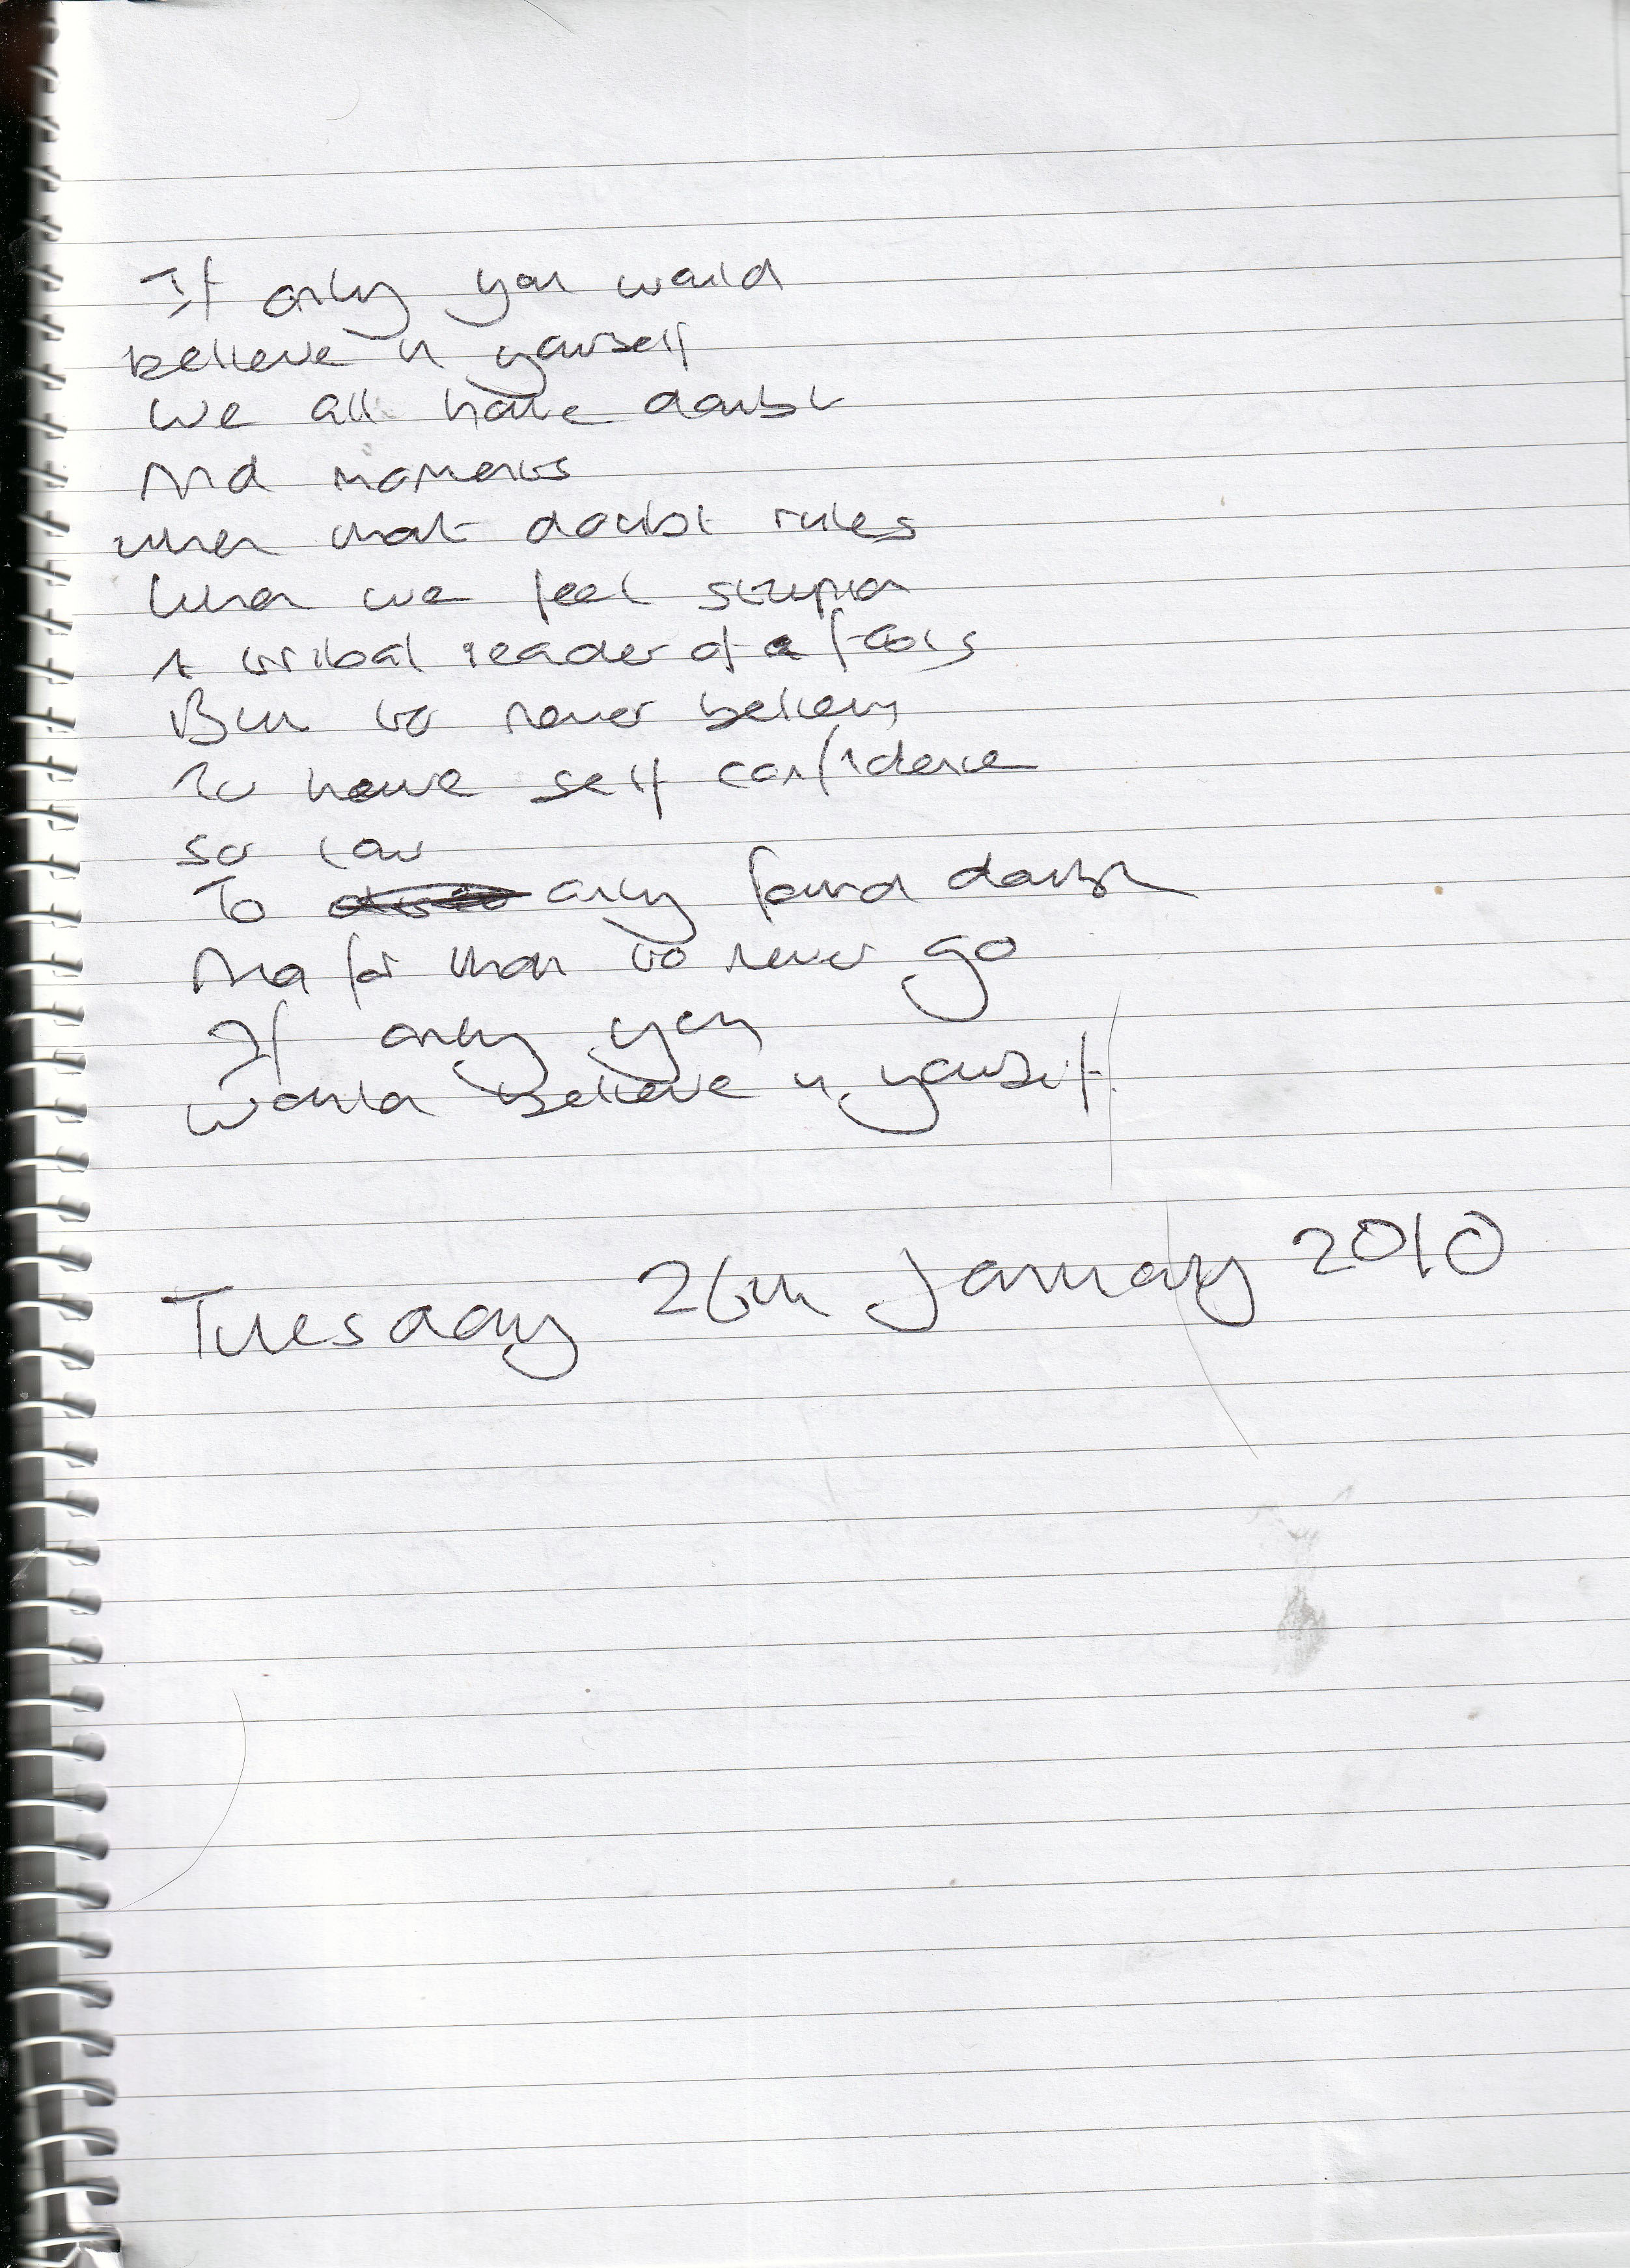 If only you would
believe in yourself
We all have doubt
And moments
when that doubt rules
When we feel stupid
A tribal leader of fools
But to never believe
To have self confidence
so low
To only found doubt
And for that to never go
If only you
would believe in yourself.
Tuesday 26th January 2010